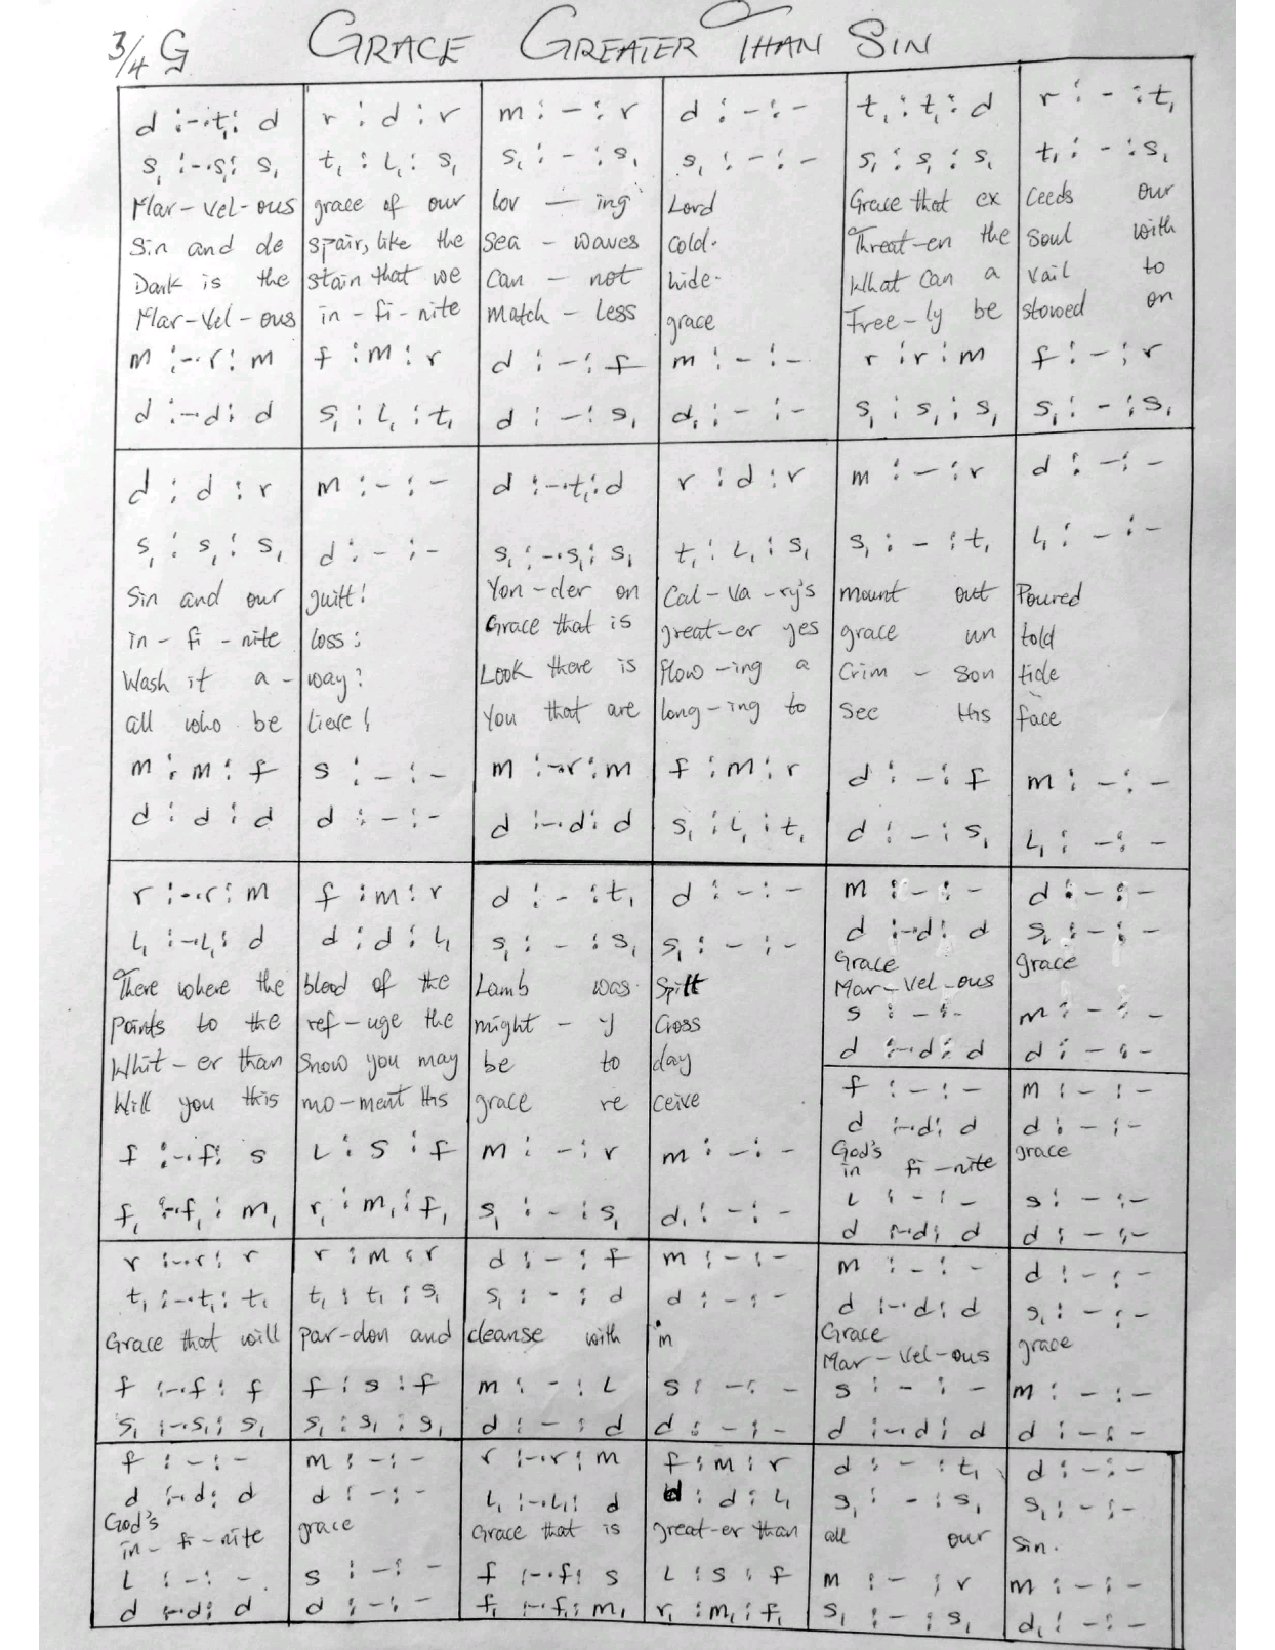 3/4 G GRACE GREATER THAN SIN
d :-.t₁: d | r : d : r | m : - : r | d : - : - | t₁ : t₁ : d | r : - : t₁
s₁ :-.s₁: s₁ | t₁ : L₁ : s₁ | s₁ : - : s₁ | s₁ : - : - | s₁ : s₁ : s₁ | t₁ : - : s₁
Mar-vel-ous | grace of our | lov - ing | Lord | Grace that ex | ceeds our
Sin and de | spair, like the | sea - waves | cold. | Threat-en the | soul with
Dark is the | stain that we | can - not | hide- | What can a | vail to
Mar-vel-ous | in-fi-nite | match-less | grace | Free-ly be | stowed on
m :-.r: m | f : m : r | d : - : f | m : - : - | r : r : m | f : - : r
d :-.d: d | s₁ : L₁ : t₁ | d : - : s₁ | d₁ : - : - | s₁ : s₁ : s₁ | s₁ : - : s₁
d : d : r | m : - : - | d :-.t₁: d | r : d : r | m : - : r | d : - : -
s₁ : s₁ : s₁ | d : - : - | s₁ :-.s₁: s₁ | t₁ : L₁ : s₁ | s₁ : - : t₁ | L₁ : - : -
Sin and our | guilt! | Yon-der on | Cal-va-ry's | mount out | Poured
in-fi-nite | loss: | Grace that is | great-er yes | grace un | told
Wash it a- | way? | Look there is | flow-ing a | Crim - son | tide
all who be | lieve! | You that are | long-ing to | see His | face
m : m : f | s : - : - | m :-.r: m | f : m : r | d : - : f | m : - : -
d : d : d | d : - : - | d :-.d: d | s₁ : L₁ : t₁ | d : - : s₁ | L₁ : - : -
r :-.r: m | f : m : r | d : - : t₁ | d : - : - | m : - : - | d : - : -
L₁ :-.L₁: d | d : d : L₁ | s₁ : - : s₁ | s₁ : - : - | d :-.d: d | s₁ : - : -
There where the | blood of the | Lamb was | Spilt | Grace | grace
Points to the | ref-uge the | might - y | Cross | Mar-vel-ous
Whit-er than | Snow you may | be to | day | s : - : - | m : - : -
Will you this | mo-ment His | grace re | ceive | d :-.d: d | d : - : -
f :-.f: s | L : s : f | m : - : r | m : - : - | f : - : - | m : - : -
f₁ :-.f₁: m₁ | r₁ : m₁ : f₁ | s₁ : - : s₁ | d₁ : - : - | d :-.d: d | d : - : -
God's | grace
in fi-nite
L : - : - | s : - : -
d :-.d: d | d : - : -
r :-.r: r | r : m : r | d : - : f | m : - : - | m : - : - | d : - : -
t₁ :-.t₁: t₁ | t₁ : t₁ : s₁ | s₁ : - : d | d : - : - | d :-.d: d | s₁ : - : -
Grace that will | par-don and | cleanse with | in | Grace | grace
Mar-vel-ous
f :-.f: f | f : s : f | m : - : L | s : - : - | s : - : - | m : - : -
s₁ :-.s₁: s₁ | s₁ : s₁ : s₁ | d : - : d | d : - : - | d :-.d: d | d : - : -
f : - : - | m : - : - | r :-.r: m | f : m : r | d : - : t₁ | d : - : -
d :-.d: d | d : - : - | L₁ :-.L₁: d | d : d : L₁ | s₁ : - : s₁ | s₁ : - : -
God's | grace | Grace that is | great-er than | all our | sin.
in-fi-nite
L : - : - | s : - : - | f :-.f: s | L : s : f | m : - : r | m : - : -
d :-.d: d | d : - : - | f₁ :-.f₁: m₁ | r₁ : m₁ : f₁ | s₁ : - : s₁ | d₁ : - : -